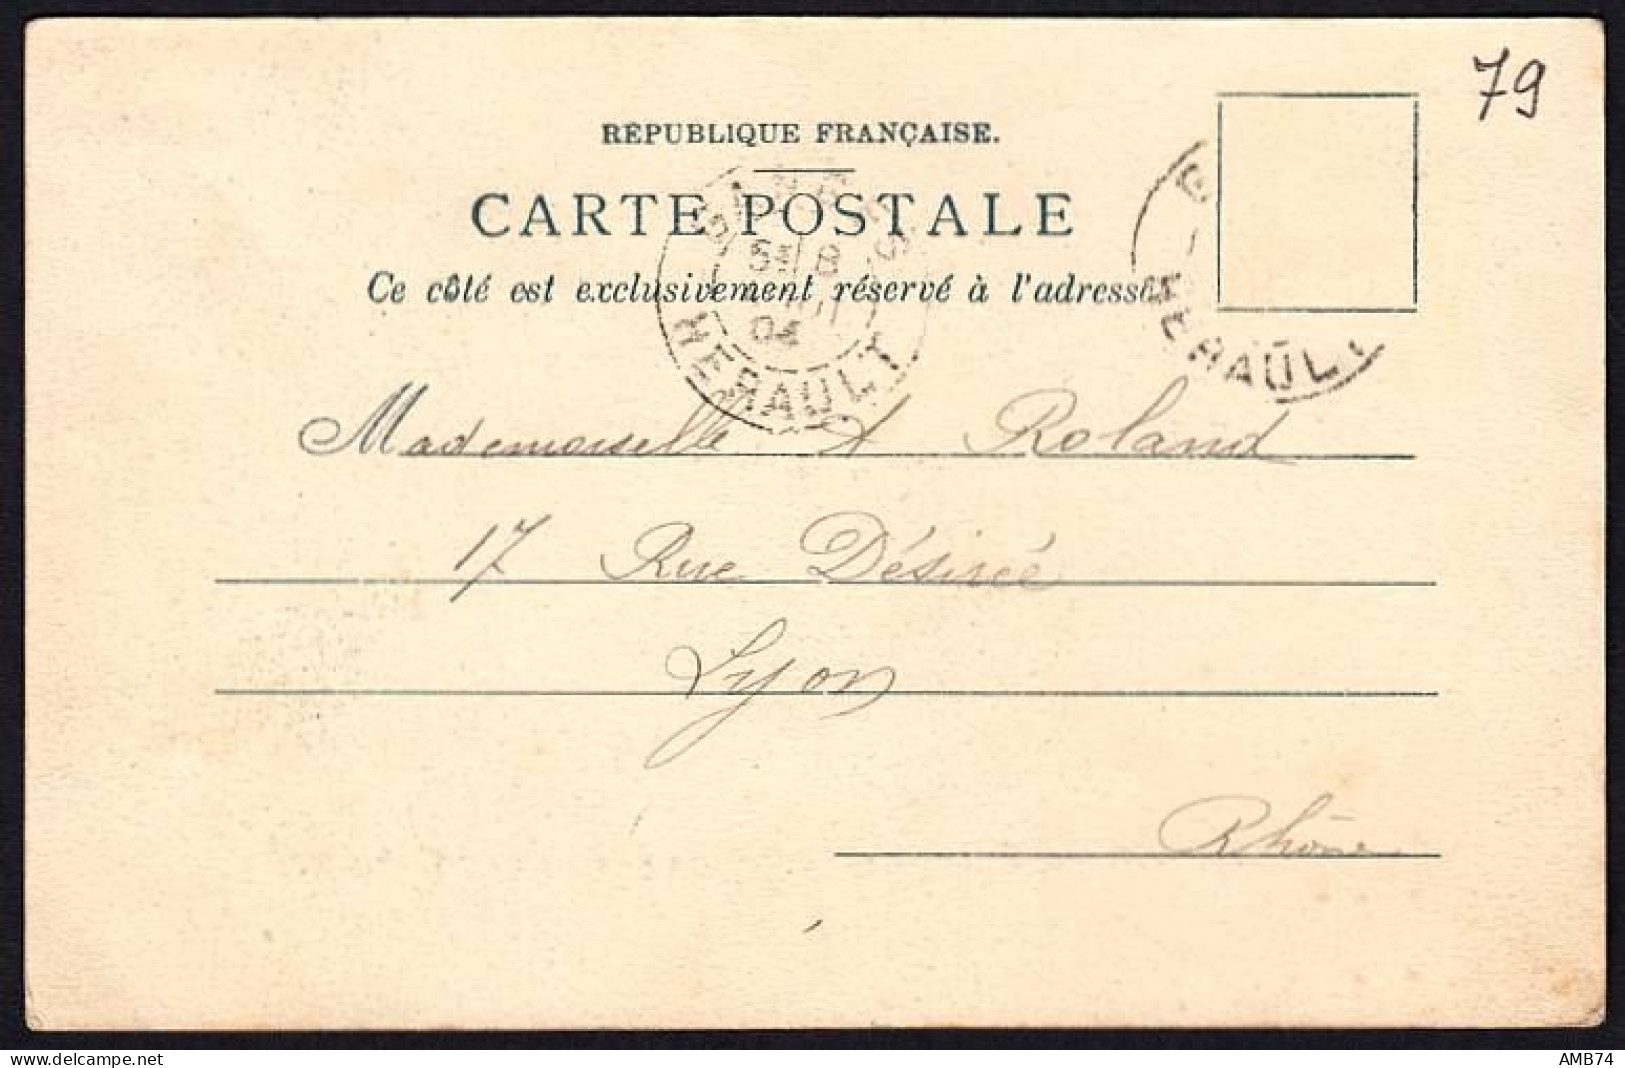 79
RÉPUBLIQUE FRANÇAISE.
CARTE POSTALE
Ce côté est exclusivement réservé à l'adresse
04
HERAULT
HERAULT
Mademoiselle A Roland
17 Rue Désirée
Lyon
Rhône
delcampe.net
AMB74